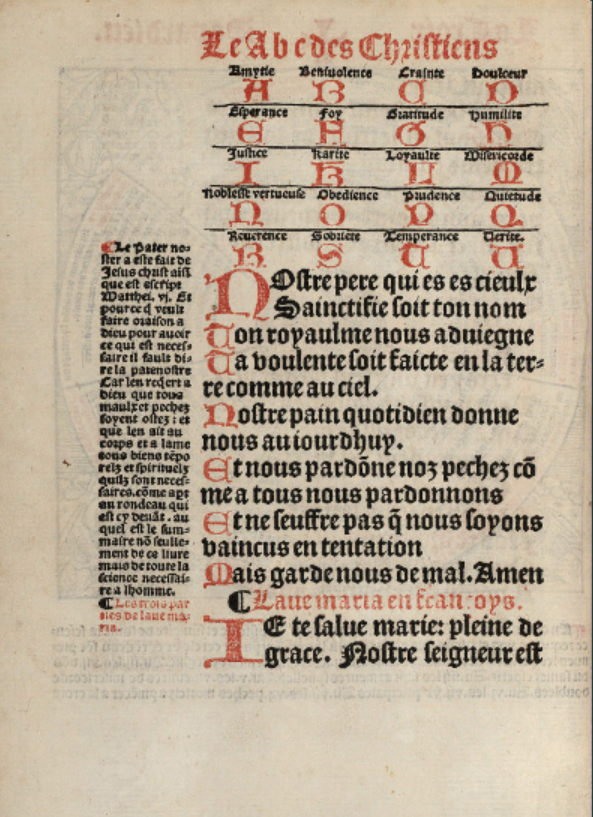 Le A b c des Christiens
Amytie Beniuolence Crainte Doulceur
A B C D
Esperance Foy Gratitude Humilite
E F G H
Justice Karite Loyaulte Misericorde
I K L M
Noblesse vertueuse Obedience Prudence Quietude
N O P Q
Reuerence Sobriete Temperance Verite.
R S T V
NOstre pere qui es es cieulx
Sainctifie soit ton nom
Ton royaulme nous aduiegne
Ta voulente soit faicte en la ter-
re comme au ciel.
Nostre pain quotidien donne
nous auiourdhuy.
Et nous pardōne noz pechez cō
me a tous nous pardonnons
Et ne seuffre pas q̄ nous soyons
vaincus en tentation
Mais garde nous de mal. Amen
¶ Laue maria en francoys.
IE te salue marie: pleine de
grace. Nostre seigneur est
¶ Le Pater no-
ster a este fait de
Jesus christ aīsi
que est escript
Matthei. vj. Et
pource q̄ veult
faire oraison a
dieu pour auoir
ce qui est neces-
saire il fault di-
re la patenostre
Car len reqert a
dieu que tous
maulx et pechez
soyent ostez: et
que len ait au
corps et a lame
tous biens tēpo
relz et spirituelz
quilz sont neces-
saires. cōme apt
en rondeau qui
est cy deuāt. au
quel est le som-
maire nō seulle-
ment de ce liure
mais de toute la
science necessai-
re a lhomme.
¶ Les trois par
ties de laue ma-
ria.